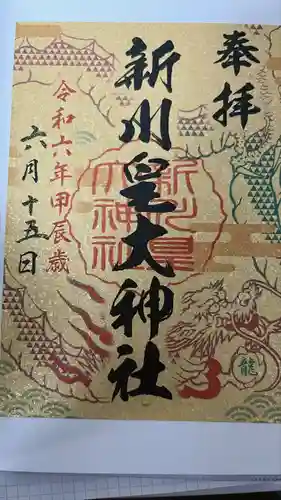 奉拝
新川皇大神社
令和六年甲辰歳
六月十五日
新川皇大神社
龍